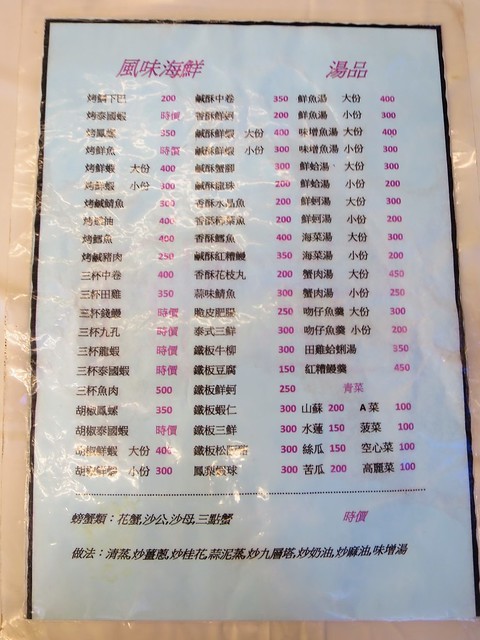 風味海鮮 湯品
烤鯛下巴 200 鹹酥中卷 350 鮮魚湯 大份 400
烤泰國蝦 時價 香酥鮮蚵 200 鮮魚湯 小份 300
烤鳳螺 350 鹹酥鮮蝦 大份 400 味增魚湯 大份 400
烤鮮魚 時價 鹹酥鮮蝦 小份 300 味增魚湯 小份 300
烤鮮蝦 大份 400 鹹酥蟹腳 300 鮮蛤湯 大份 300
烤鮮蝦 小份 300 鹹酥龍珠 200 鮮蛤湯 小份 200
烤鹹鯖魚 300 香酥水晶魚 200 鮮蚵湯 大份 300
烤 油 400 香酥柳葉魚 200 鮮蚵湯 小份 200
烤鱈魚 400 香酥鱈魚 400 海菜湯 大份 300
烤鹹豬肉 250 鹹酥紅糟鰻 350 海菜湯 小份 200
三杯中卷 400 香酥花枝丸 200 蟹肉湯 大份 450
三杯田雞 350 蒜味鯖魚 300 蟹肉湯 小份 250
三杯錢鰻 時價 脆皮肥腸 250 吻仔魚羹 大份 300
三杯九孔 時價 泰式三鮮 300 吻仔魚羹 小份 200
三杯龍蝦 時價 鐵板牛柳 300 田雞蛤蜊湯 350
三杯泰國蝦 時價 鐵板豆腐 150 紅糟鰻羹 450
三杯魚肉 500 鐵板鮮蚵 250 青菜
胡椒鳳螺 350 鐵板蝦仁 300 山蘇 200 A菜 100
胡椒泰國蝦 時價 鐵板三鮮 300 水蓮 150 菠菜 100
胡椒鮮蝦 大份 400 鐵板松阪豬 300 絲瓜 150 空心菜 100
胡椒鮮蝦 小份 300 鳳梨蝦球 300 苦瓜 200 高麗菜 100
螃蟹類：花蟹,沙公,沙母,三點蟹 時價
做法：清蒸,炒薑蔥,炒桂花,蒜泥蒸,炒九層塔,炒奶油,炒麻油,味增湯